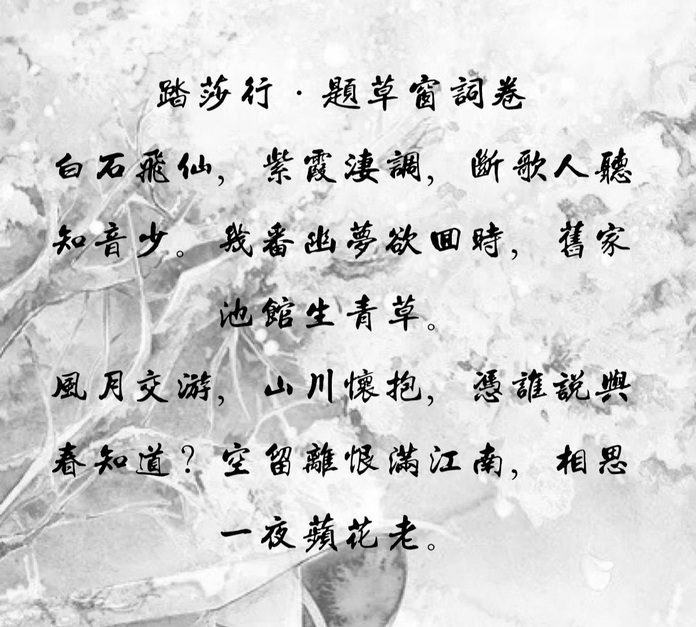 踏莎行·題草窗詞卷
白石飛仙，紫霞淒調，斷歌人聽
知音少。幾番幽夢欲回時，舊家
池館生青草。
風月交游，山川懷抱，憑誰說與
春知道？空留離恨滿江南，相思
一夜蘋花老。